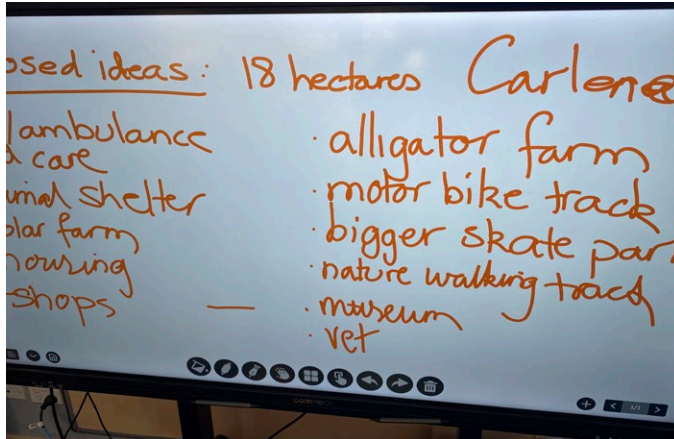 osed ideas: 18 hectares Carlene
/ambulance
care
mal shelter
lar farm
housing
shops
· alligator farm
· motor bike track
· bigger skate par
· nature walking track
· museum
· vet
1/1